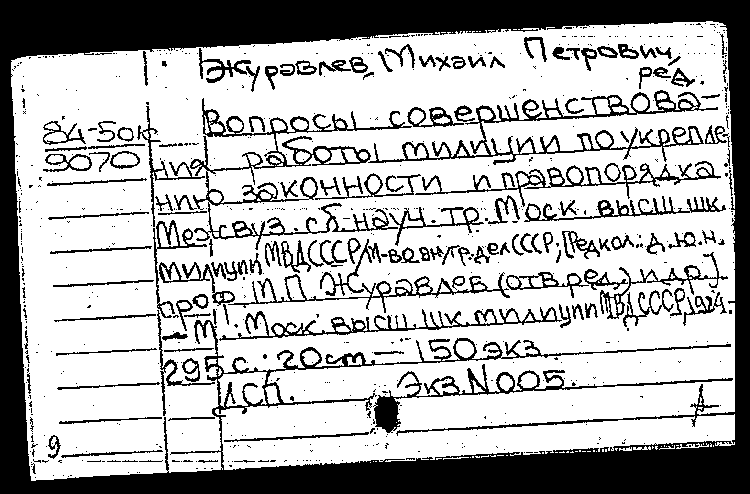 Журавлев, Михаил Петрович,
ред.
84-50к
9070
Вопросы совершенствова-
ния работы милиции по укрепле
нию законности и правопорядка:
Межвуз. сб. науч. тр. Моск. высш. шк.
милиции МВД СССР/М-во внутр. дел СССР; [Редкол.: д.ю.н.
проф. М.П. Журавлев (отв. ред.) и др.].
— М.: Моск. высш. шк. милиции МВД СССР, 1984.-
295 с.; 20 см. — 150 экз.
ДСП. Экз. N 005.
9